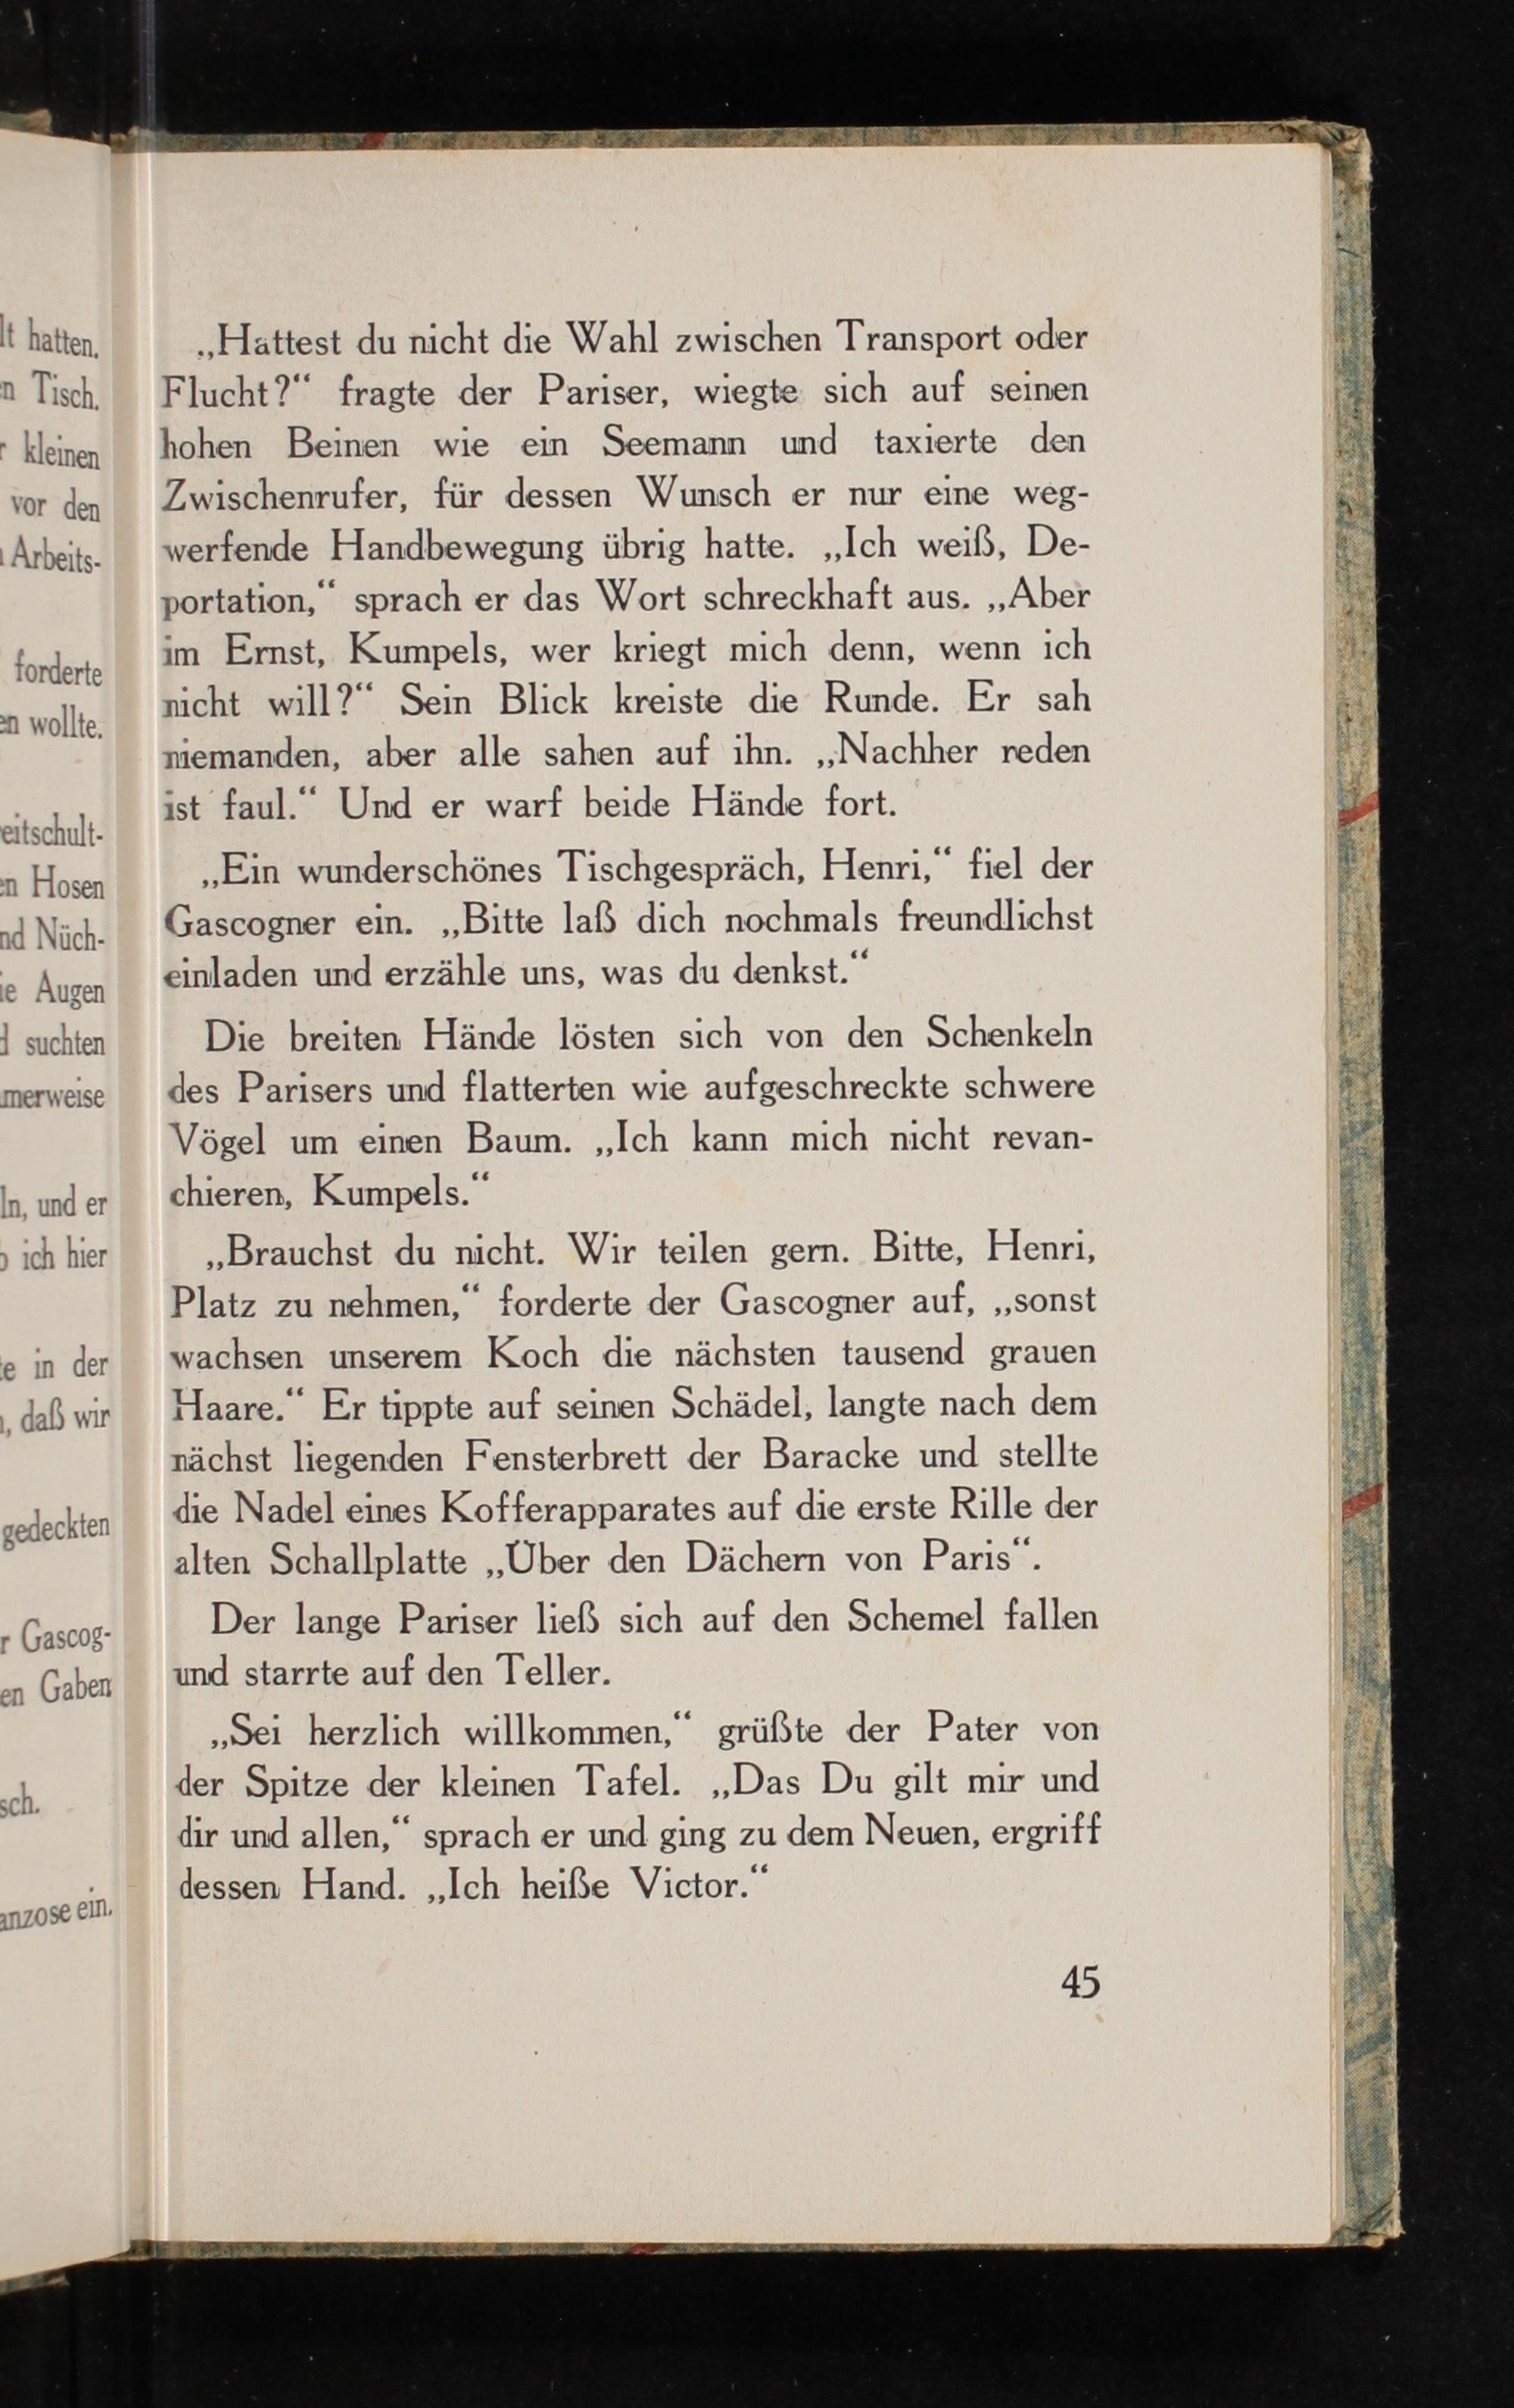 lt hatten.
n Tisch.
r kleinen
vor den
Arbeits-
forderte
en wollte.
eitschult-
en Hosen
nd Nüch-
ie Augen
d suchten
merweise
ln, und er
ich hier
te in der
, daß wir
gedeckten
r Gascog-
en Gaben
sch.
anzose ein.
„Hattest du nicht die Wahl zwischen Transport oder
Flucht?“ fragte der Pariser, wiegte sich auf seinen
hohen Beinen wie ein Seemann und taxierte den
Zwischenrufer, für dessen Wunsch er nur eine weg-
werfende Handbewegung übrig hatte. „Ich weiß, De-
portation,“ sprach er das Wort schreckhaft aus. „Aber
im Ernst, Kumpels, wer kriegt mich denn, wenn ich
nicht will?“ Sein Blick kreiste die Runde. Er sah
niemanden, aber alle sahen auf ihn. „Nachher reden
ist faul.“ Und er warf beide Hände fort.
„Ein wunderschönes Tischgespräch, Henri,“ fiel der
Gascogner ein. „Bitte laß dich nochmals freundlichst
einladen und erzähle uns, was du denkst.“
Die breiten Hände lösten sich von den Schenkeln
des Parisers und flatterten wie aufgeschreckte schwere
Vögel um einen Baum. „Ich kann mich nicht revan-
chieren, Kumpels.“
„Brauchst du nicht. Wir teilen gern. Bitte, Henri,
Platz zu nehmen,“ forderte der Gascogner auf, „sonst
wachsen unserem Koch die nächsten tausend grauen
Haare.“ Er tippte auf seinen Schädel, langte nach dem
nächst liegenden Fensterbrett der Baracke und stellte
die Nadel eines Kofferapparates auf die erste Rille der
alten Schallplatte „Über den Dächern von Paris“.
Der lange Pariser ließ sich auf den Schemel fallen
und starrte auf den Teller.
„Sei herzlich willkommen,“ grüßte der Pater von
der Spitze der kleinen Tafel. „Das Du gilt mir und
dir und allen,“ sprach er und ging zu dem Neuen, ergriff
dessen Hand. „Ich heiße Victor.“
45